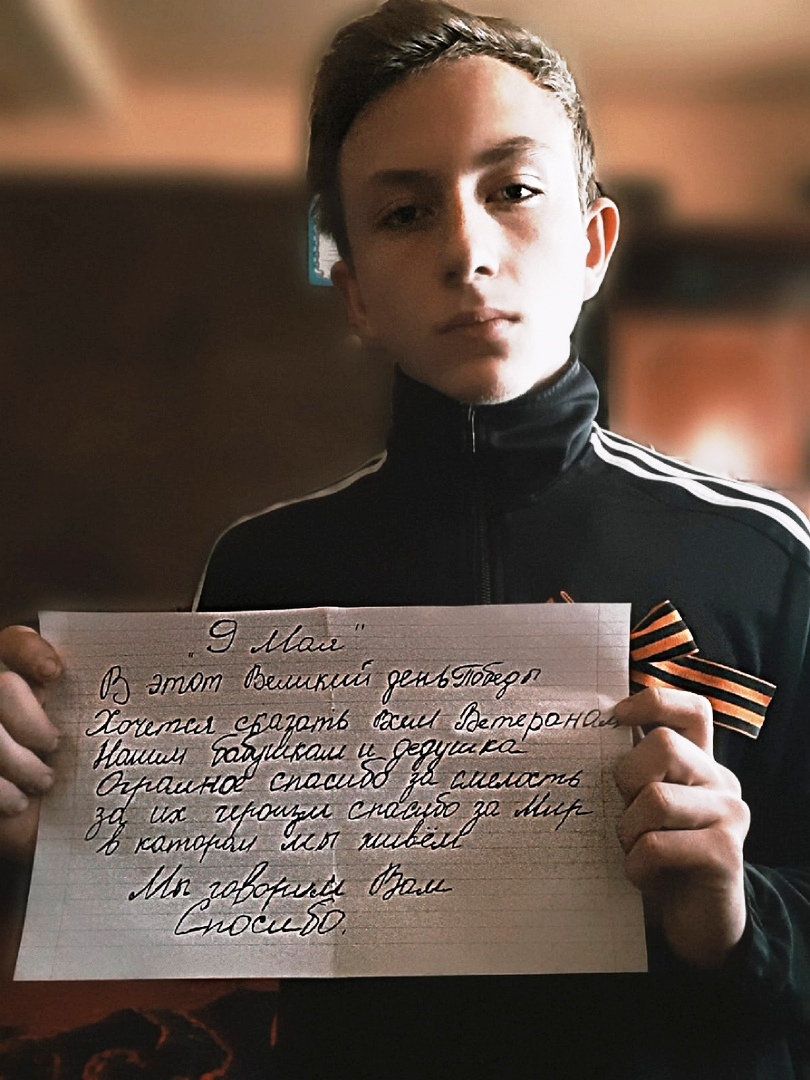 "9 Мая"
В этот Великий день Победы
Хочется сказать Всем Ветеранам
Нашим бабушкам и дедушка
Ограмное спасибо за смелость
за их героизм спасибо за Мир
в котором мы живём
Мы говорим Вам
Спосибо.